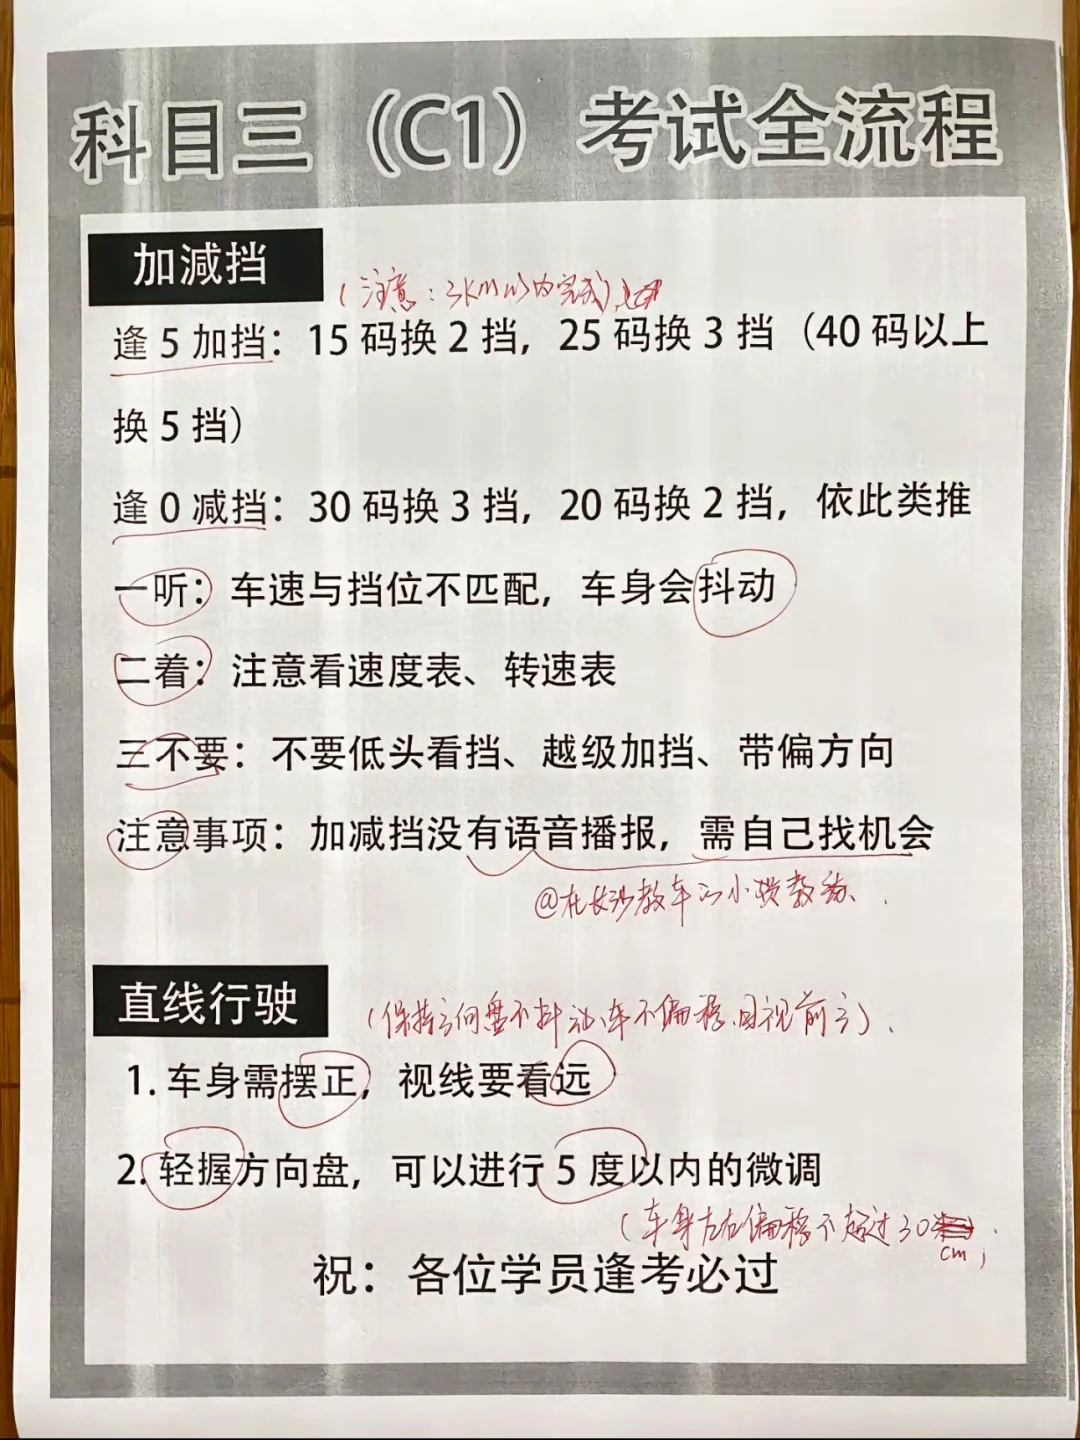 科目三（C1）考试全流程
加减挡
（注意：3KM以内完成）
逢5加挡：15码换2挡，25码换3挡（40码以上
换5挡）
逢0减挡：30码换3挡，20码换2挡，依此类推
一听：车速与挡位不匹配，车身会抖动
二着：注意看速度表、转速表
三不要：不要低头看挡、越级加挡、带偏方向
注意事项：加减挡没有语音播报，需自己找机会
@在长沙教车的小 教练
直线行驶
（保持方向盘不抖动、车不偏移、目视前方）
1. 车身需摆正，视线要看远
2. 轻握方向盘，可以进行5度以内的微调
（车身左右偏移不超过30
cm）
祝：各位学员逢考必过